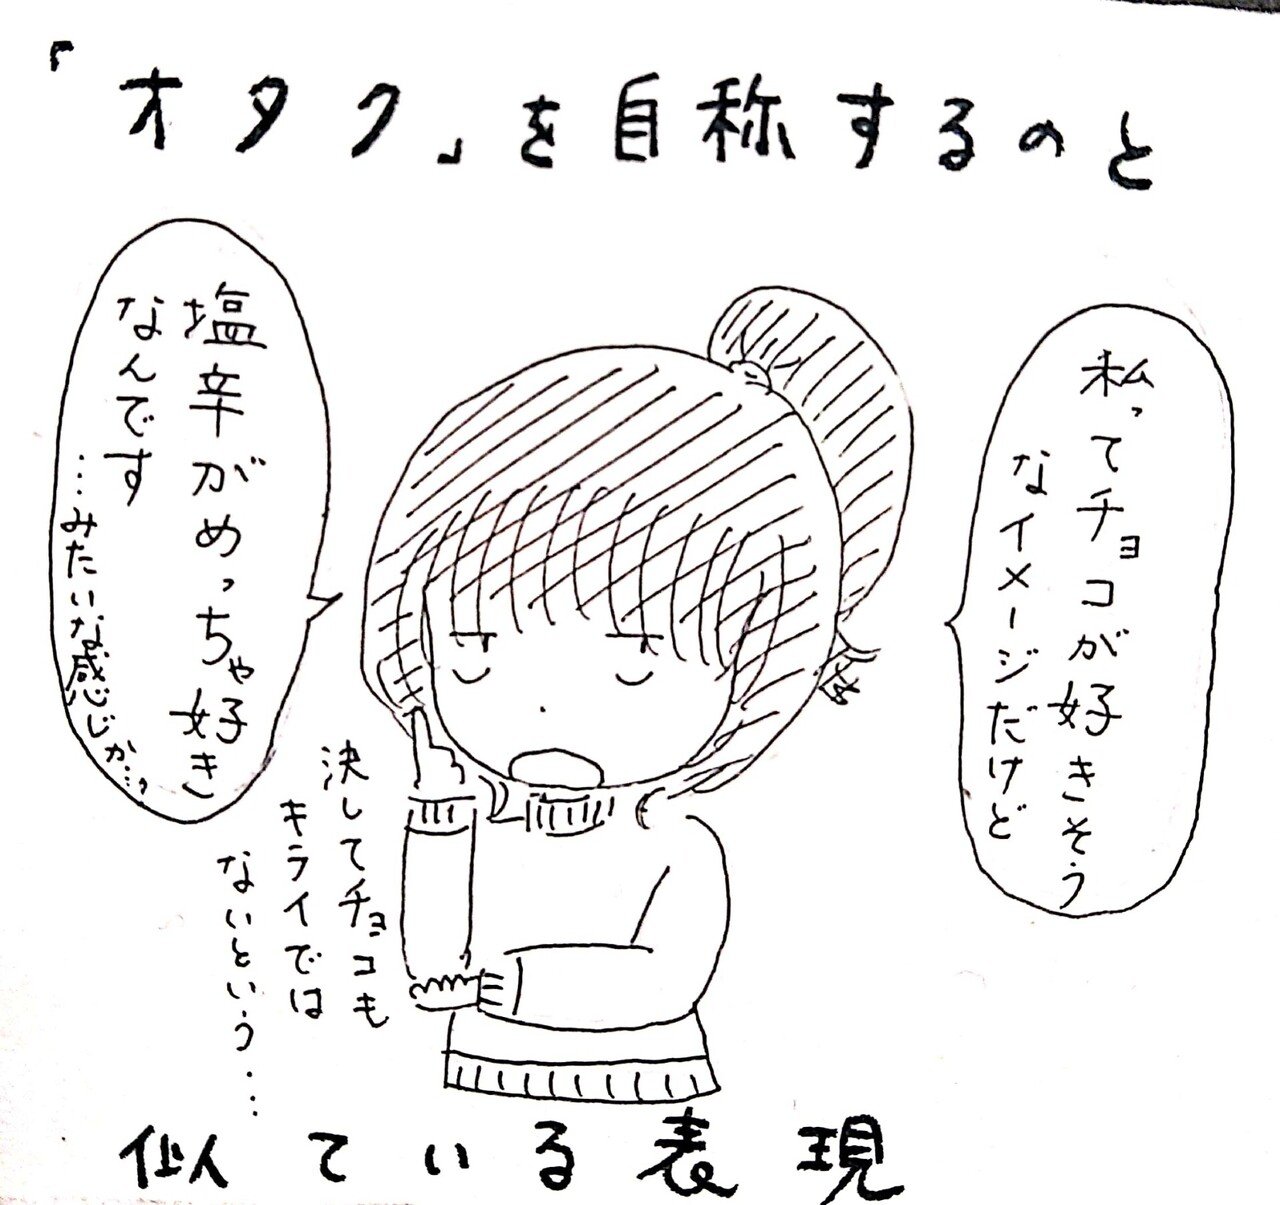 「オタク」を自称するのと
私ってチョコが好きそう
なイメージだけど
塩辛がめっちゃ好き
なんです
…みたいな感じか…?
決してチョコも
キライでは
ないという…
似ている表現